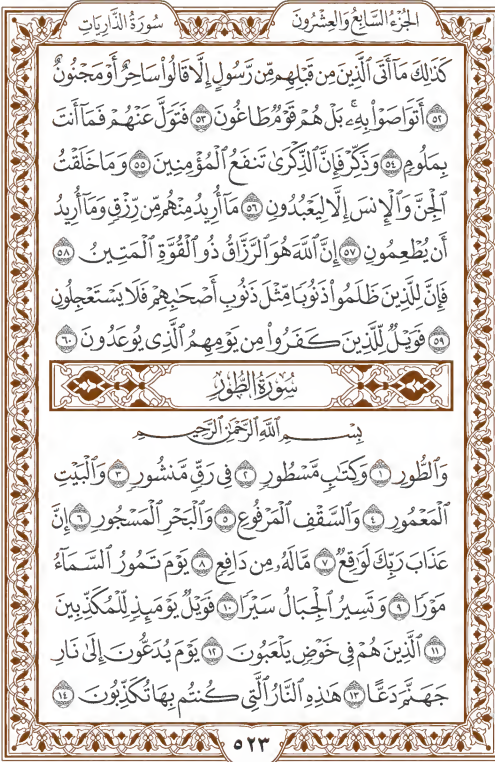 الجزء السابع والعشرون
سورة الذاريات
كَذَٰلِكَ مَآ أَتَى ٱلَّذِينَ مِن قَبۡلِهِم مِّن رَّسُولٍ إِلَّا قَالُواْ سَاحِرٌ أَوۡ مَجۡنُونٌ
٥٢ أَتَوَاصَوۡاْ بِهِۦۚ بَلۡ هُمۡ قَوۡمٞ طَاغُونَ ٥٣ فَتَوَلَّ عَنۡهُمۡ فَمَآ أَنتَ
بِمَلُومٖ ٥٤ وَذَكِّرۡ فَإِنَّ ٱلذِّكۡرَىٰ تَنفَعُ ٱلۡمُؤۡمِنِينَ ٥٥ وَمَا خَلَقۡتُ
ٱلۡجِنَّ وَٱلۡإِنسَ إِلَّا لِيَعۡبُدُونِ ٥٦ مَآ أُرِيدُ مِنۡهُم مِّن رِّزۡقٖ وَمَآ أُرِيدُ
أَن يُطۡعِمُونِ ٥٧ إِنَّ ٱللَّهَ هُوَ ٱلرَّزَّاقُ ذُو ٱلۡقُوَّةِ ٱلۡمَتِينُ ٥٨
فَإِنَّ لِلَّذِينَ ظَلَمُواْ ذَنُوبٗا مِّثۡلَ ذَنُوبِ أَصۡحَٰبِهِمۡ فَلَا يَسۡتَعۡجِلُونِ
٥٩ فَوَيۡلٞ لِّلَّذِينَ كَفَرُواْ مِن يَوۡمِهِمُ ٱلَّذِي يُوعَدُونَ ٦٠
سُورَةُ الطُّورِ
بِسۡمِ ٱللَّهِ ٱلرَّحۡمَٰنِ ٱلرَّحِيمِ
وَٱلطُّورِ ١ وَكِتَٰبٖ مَّسۡطُورٖ ٢ فِي رَقّٖ مَّنشُورٖ ٣ وَٱلۡبَيۡتِ
ٱلۡمَعۡمُورِ ٤ وَٱلسَّقۡفِ ٱلۡمَرۡفُوعِ ٥ وَٱلۡبَحۡرِ ٱلۡمَسۡجُورِ ٦ إِنَّ
عَذَابَ رَبِّكَ لَوَٰقِعٞ ٧ مَّا لَهُۥ مِن دَافِعٖ ٨ يَوۡمَ تَمُورُ ٱلسَّمَآءُ
مَوۡرٗا ٩ وَتَسِيرُ ٱلۡجِبَالُ سَيۡرٗا ١٠ فَوَيۡلٞ يَوۡمَئِذٖ لِّلۡمُكَذِّبِينَ
١١ ٱلَّذِينَ هُمۡ فِي خَوۡضٖ يَلۡعَبُونَ ١٢ يَوۡمَ يُدَعُّونَ إِلَىٰ نَارِ
جَهَنَّمَ دَعًّا ١٣ هَٰذِهِ ٱلنَّارُ ٱلَّتِي كُنتُم بِهَا تُكَذِّبُونَ ١٤
٥٢٣